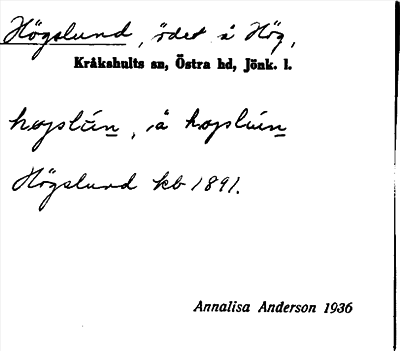 Högslund, ödet å Hög,
Kråkshults sn, Östra hd, Jönk. l.
hogslún, å hogslún
Högslund kb 1891.
Annalisa Anderson 1936